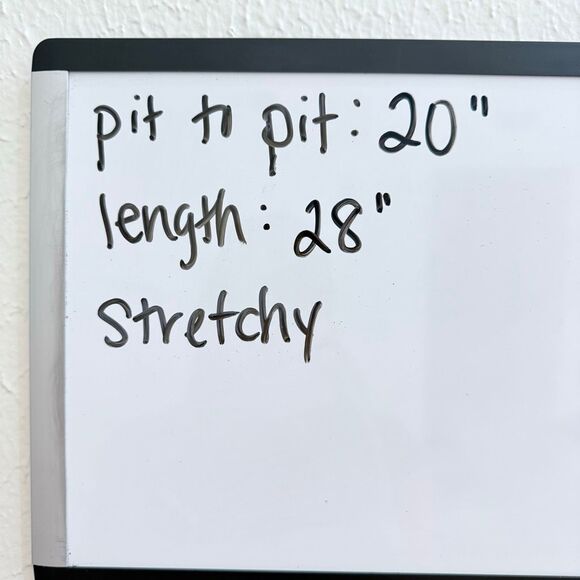 pit to pit: 20"
length: 28"
stretchy